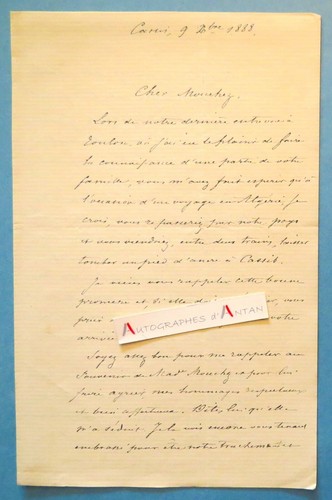 Cassis, 9 Xbre 1883.
Cher Mouchez,
Lors de notre dernière entrevue à
Toulon, où j'ai eu le plaisir de faire
la connaissance d'une partie de votre
famille, vous m'avez fait espérer qu'à
l'occasion d'un voyage en Algérie, je
crois, vous repasseriez par notre pays
et vous viendriez, entre deux trains, laisser
tomber un pied d'ancre à Cassis.
Je viens vous rappeler cette bonne
promesse et si elle vous
prie
AUTOGRAPHES D'ANTAN
notre
arrivée
Soyez assez bon pour me rappeler au
souvenir de Mad. Mouchez, pour lui
faire agréer mes hommages respectueux
et bien affectueux. Dites lui qu'elle
m'a séduit. Je la vois encore vous tenant
embrassé pour être notre